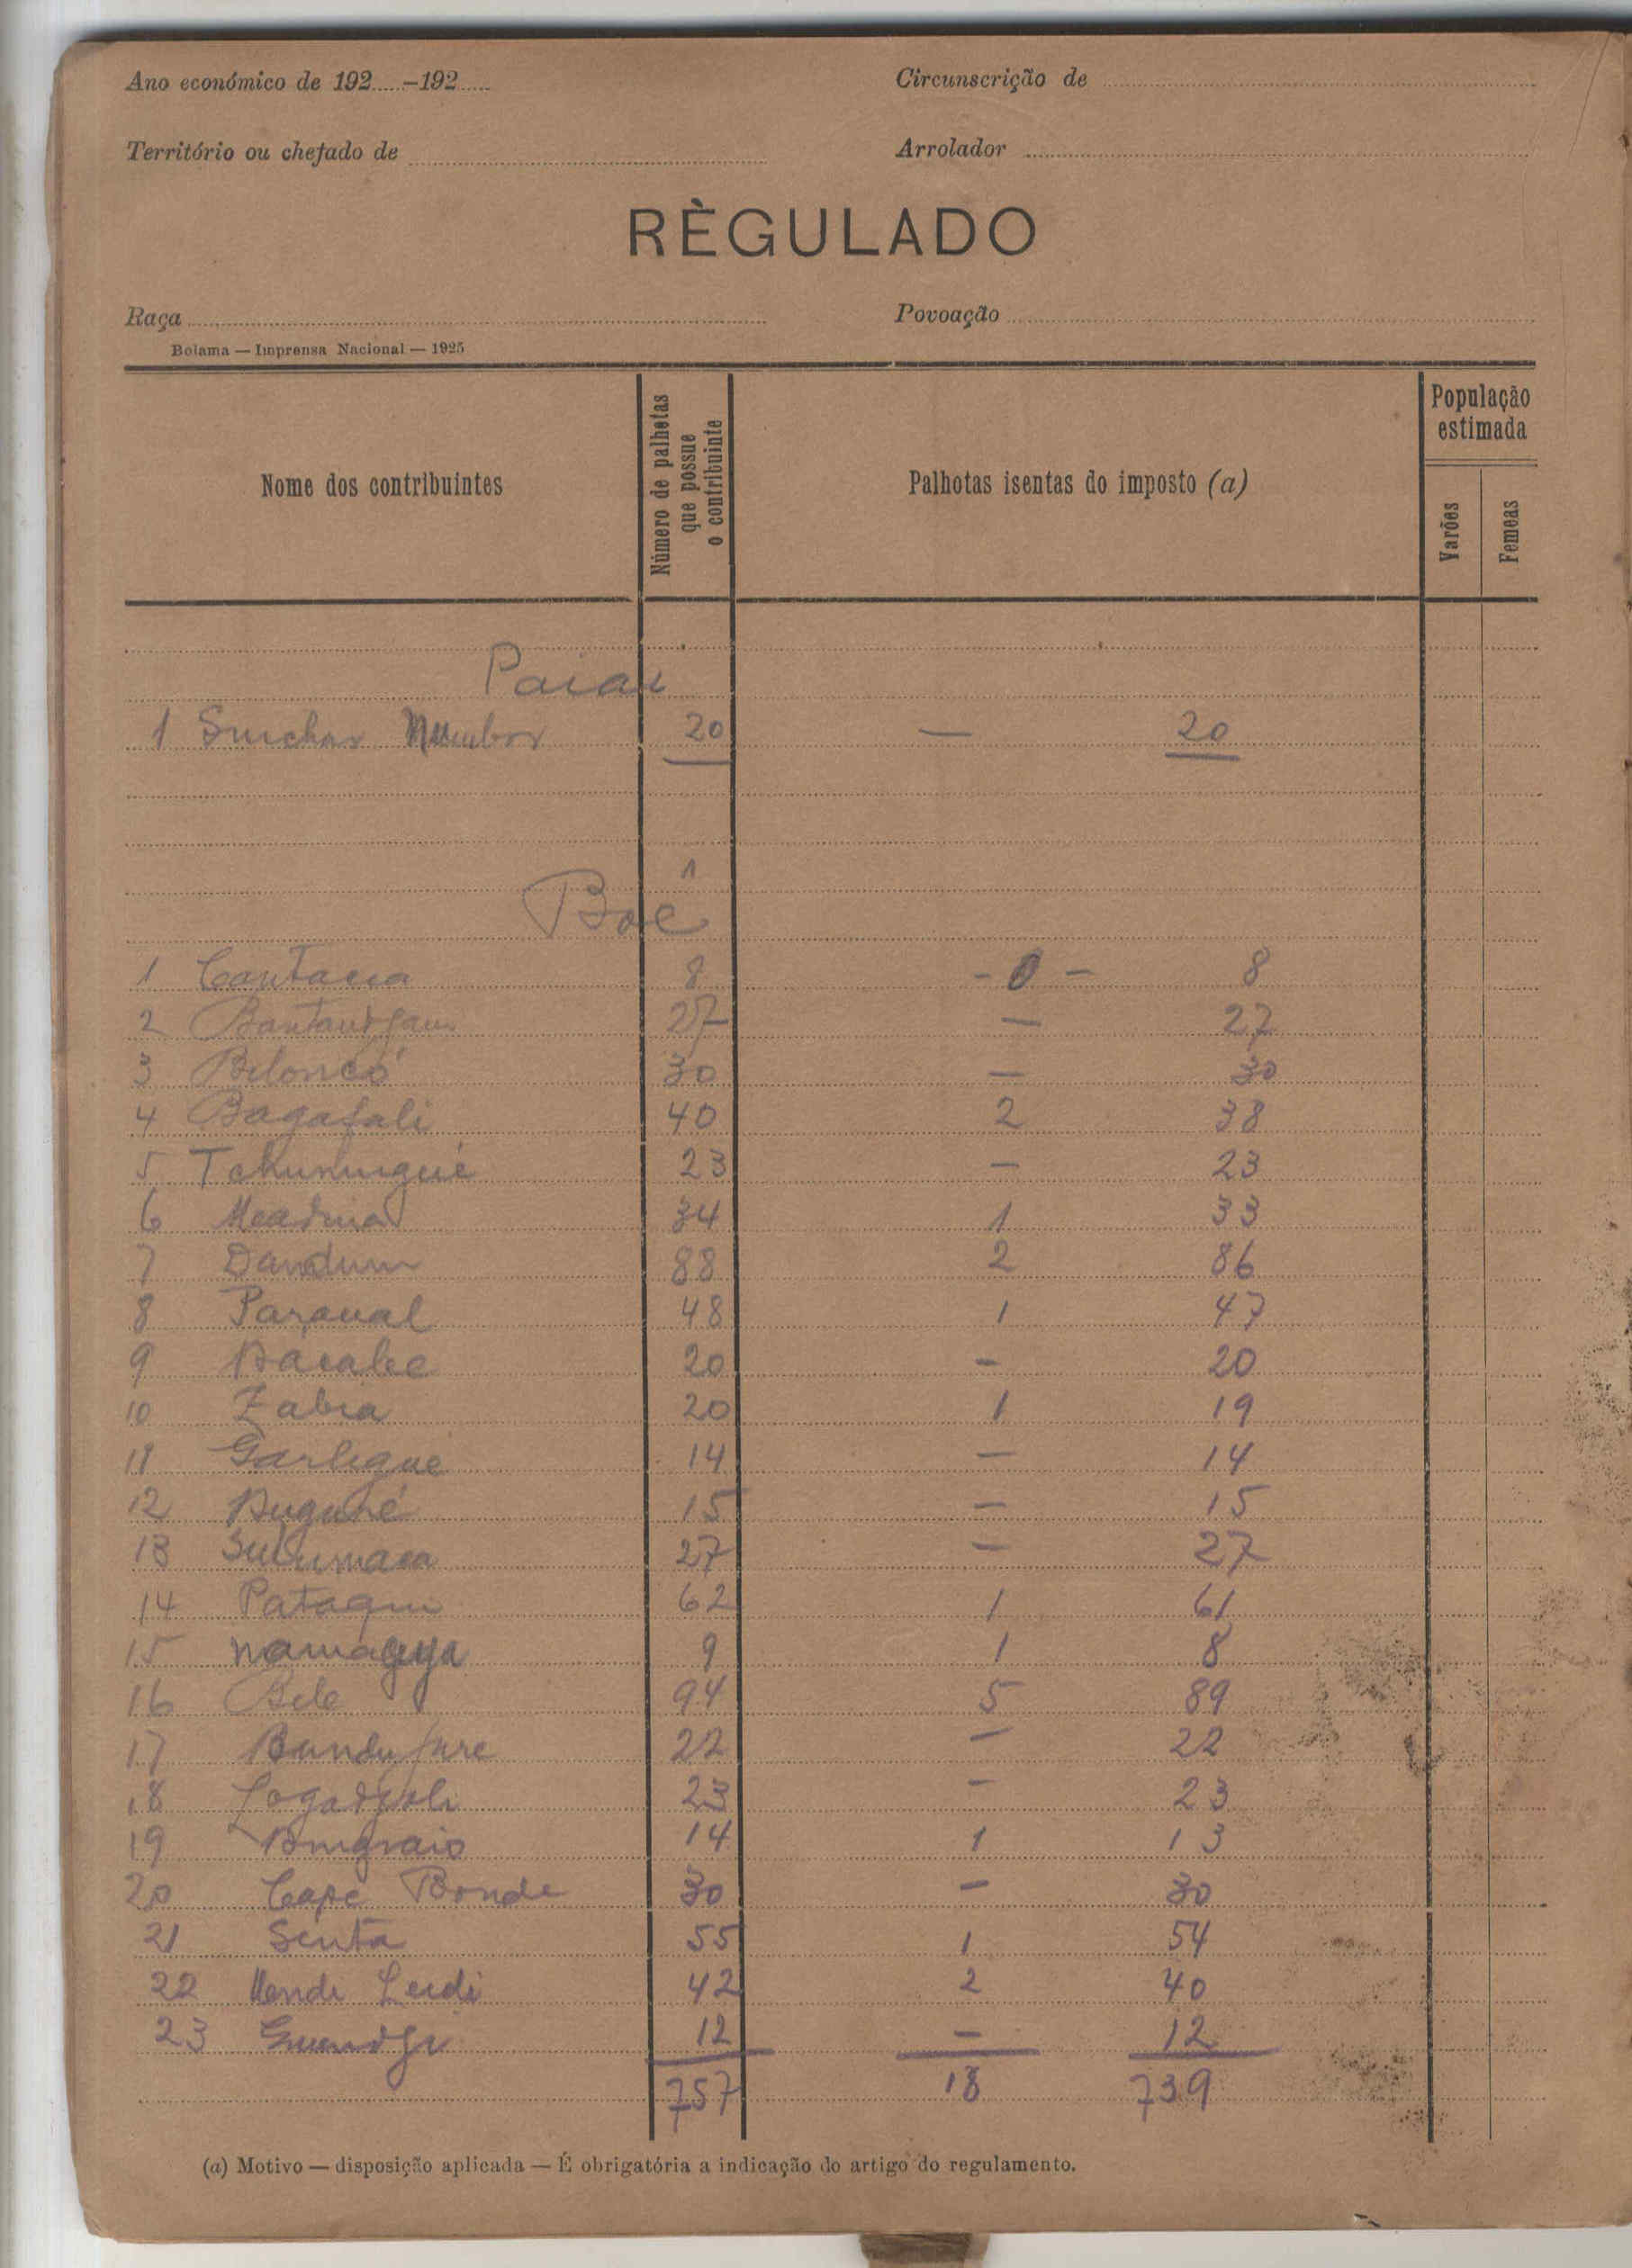 Ano económico de 192.....–192.....
Circunscrição de
Território ou chefado de
Arrolador
RÈGULADO
Raça
Povoação
Bolama — Imprensa Nacional — 1925
Nome dos contribuintes
Número de palhetas que possue o contribuinte
Palhotas isentas do imposto (a)
População estimada
Varões
Femeas
Paiai
1 20 — 20
1
Boe
1 8 - 0 - 8
2 27 — 27
3 Beloncó 30 — 30
4 Bagafali 40 2 38
5 23 — 23
6 Meadina 34 1 33
7 Dandum 88 2 86
8 Paraual 48 1 47
9 20 — 20
10 Zabia 20 1 19
11 14 — 14
12 15 — 15
13 27 — 27
14 Pataqui 62 1 61
15 9 1 8
16 Bele 94 5 89
17 22 — 22
18 23 — 23
19 14 1 13
20 Cape Bonde 30 — 30
21 Senta 55 1 54
22 42 2 40
23 12 — 12
757 18 739
(a) Motivo — disposição aplicada — É obrigatória a indicação do artigo do regulamento.